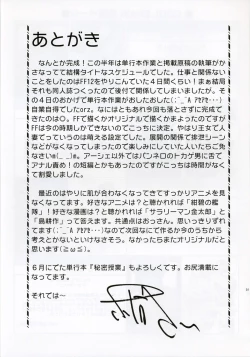 あとがき
なんとか完成!この半年は単行本作業と掲載原稿の執筆がか
さなってて結構タイトなスケジュールでした。仕事と関係ない
ことをしたのはFF12をやりこんでいた4日間くらい!まぁ結局
それも同人誌つくったので後付で関係してしまいましたが。そ
の4日のおかげで単行本作業がおしたおした
自業自得でしたorz。なにはともあれ今回も落とさずに完成で
きたのは○。FFで描くかオリジナルで描くかまよったのですが
FFは今の時期しかできないのでこっちに決定。やはり王女て人
妻てっっっいうのは萌える設定でした。展開の関係で排泄シーン
などがなくなってしまったので楽しみにしていた人いたらご免
なさいm(_ _)m。アーシェ以外ではパンネロのトカゲ男に舌で
アナル責め!の短編とかもあったのですがこっちは時間がなく
て割愛しました。
最近のはやりに肌が合わなくなってきてすっかりアニメを見
なくてます。好きなアニメは?と聴かれれば「紺碧の艦
隊」!好きな漫画は?と聴かれれば「サラリーマン金太郎」と
「島耕作」って答えます。共通点はおっさん。思いっきりずれて
ます
で次回なにて作るか今のうちから
考えとかないといけなさそう。なかったらまたオリジナルだと
思います(≧ω≦)。
6月にでた単行本『秘密授業』もよろしくです。お尻満載に
なってます。
それでは〜